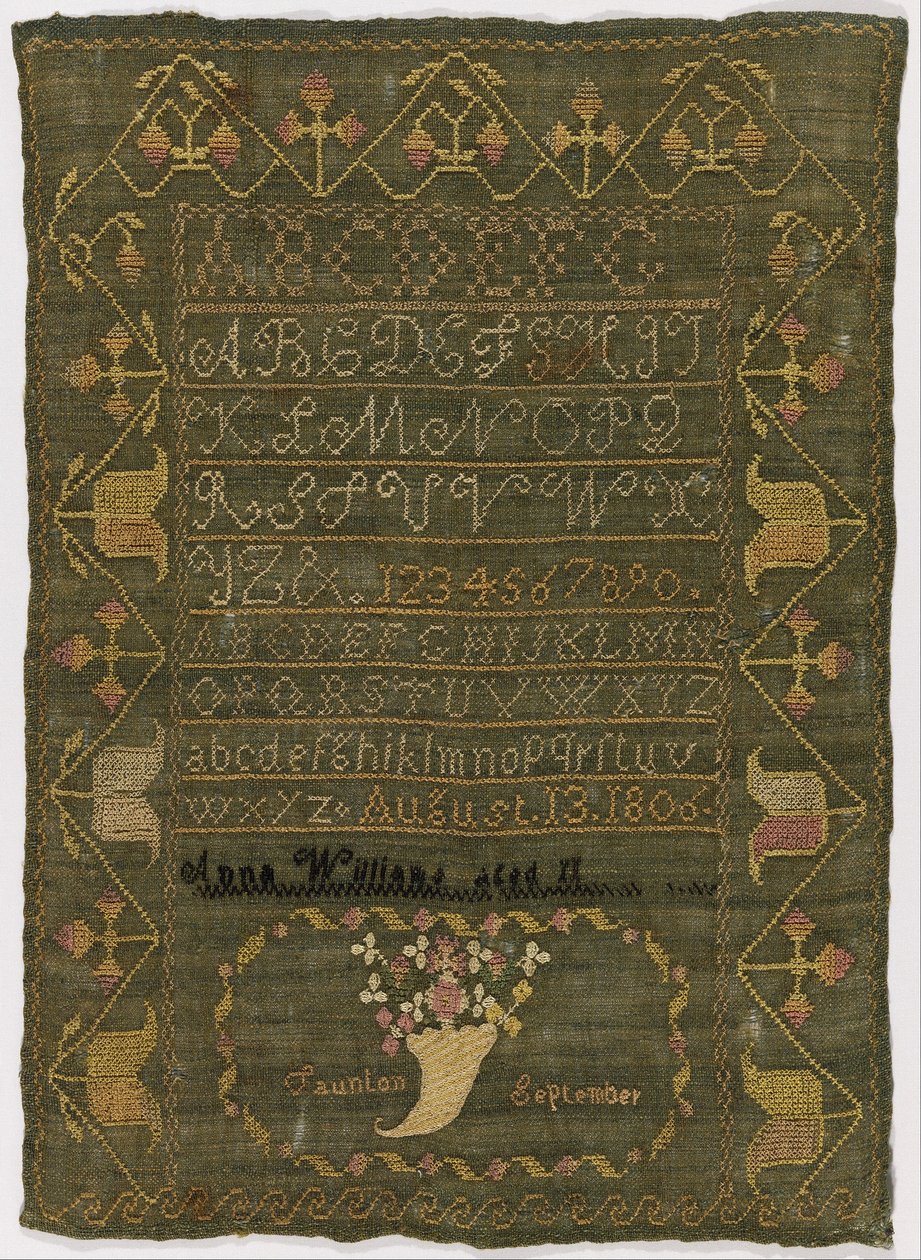 A B C D E F G
A B C D E F G H I J
K L M N O P Q
R S T U V W X
Y Z &. 1 2 3 4 5 6 7 8 9 0.
A B C D E F G H I J K L M N
O P Q R S T U V W X Y Z
a b c d e f g h i k l m n o p q r ſ t u v
w x y z & August. 13. 1806
Anna Williams aged 11
Taunton September